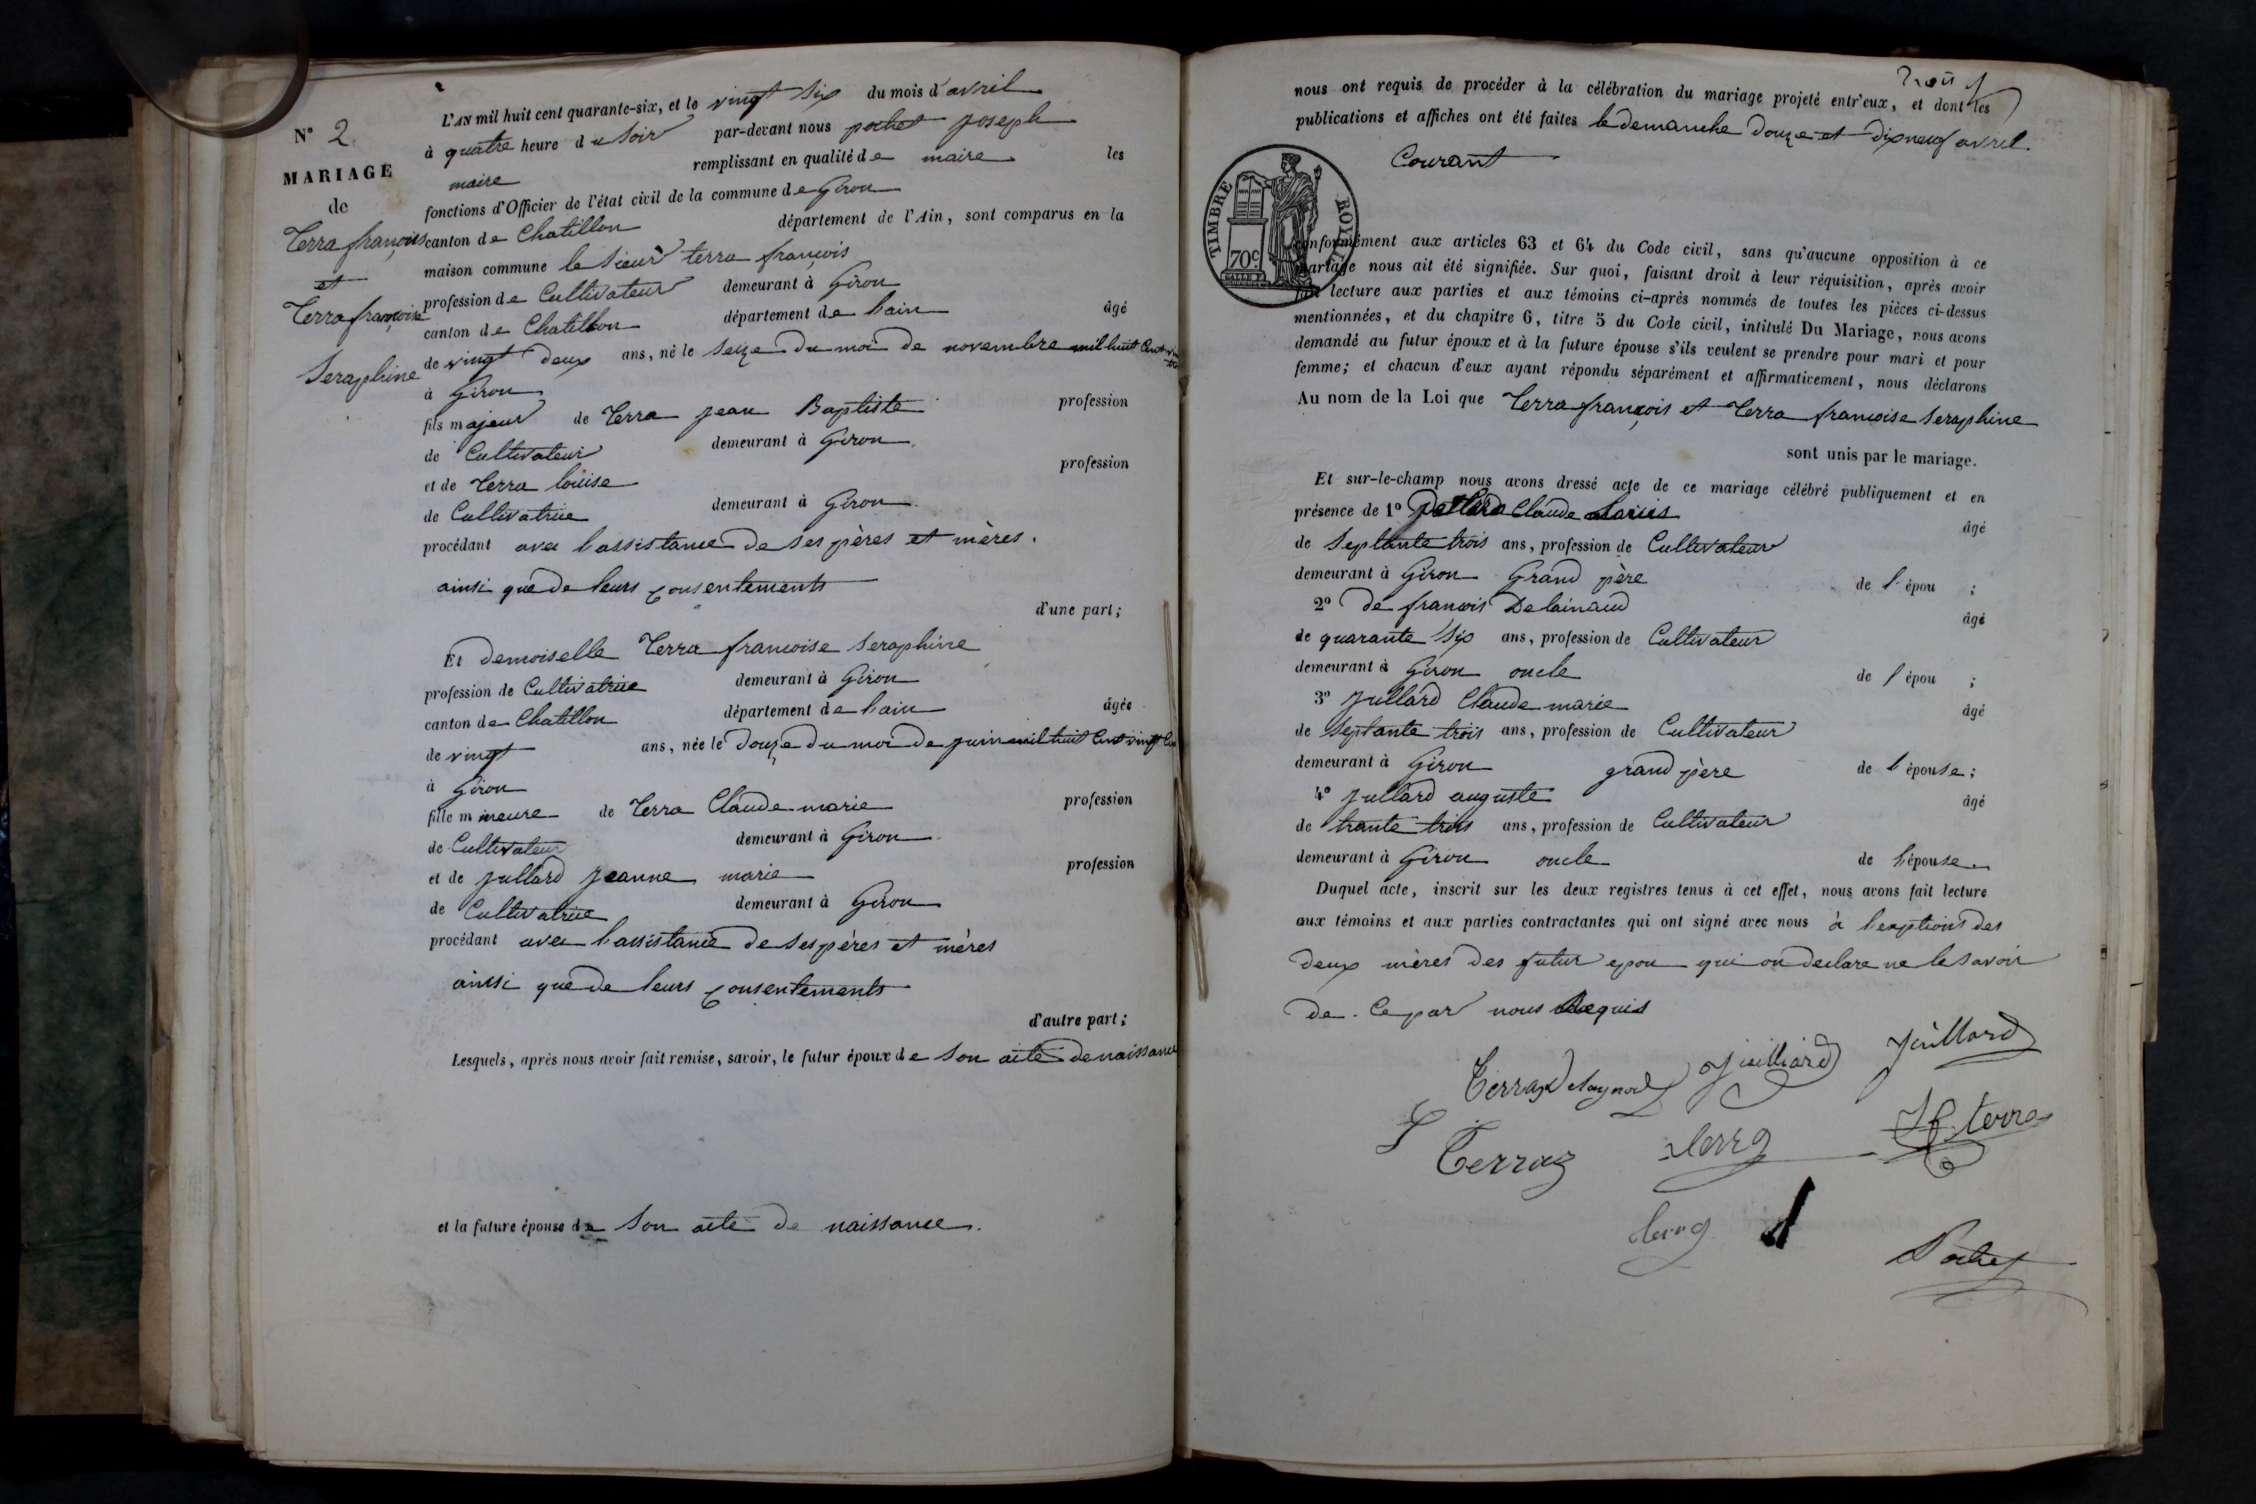 L'AN mil huit cent quarante-six, et le vingt six du mois d'avril
à quatre heure du soir par-devant nous pochet joseph
maire remplissant en qualité de maire les
fonctions d'Officier de l'état civil de la commune de Giron
canton de Chatillon département de l'Ain, sont comparus en la
maison commune le sieur terra françois
profession de Cultivateur demeurant à Giron
canton de Chatillon département de lain âgé
de vingt deux ans, né le seize du moi de novembre mil huit Cent
à Giron
fils majeur de Terra jean Baptiste profession
de Cultivateur demeurant à Giron
et de Terra louise profession
de Cultivatrice demeurant à Giron
procédant avec lassistance de ses pères et mères.
ainsi que de leurs consentements
d'une part;
Et demoiselle Terra francoise seraphine
profession de Cultivatrice demeurant à Giron
canton de Chatillon département de lain âgée
de vingt ans, née le Douze du moi de juin mil huit Cent vingt
à Giron
fille mineure de Terra Claude marie profession
de Cultivateur demeurant à Giron
et de jullard jeanne marie profession
de Cultivatrice demeurant à Giron
procédant avec lassistance de ses pères et mères
ainsi que de leurs consentements
d'autre part;
Lesquels, après nous avoir fait remise, savoir, le futur époux de son acte de naissance
et la future épouse de son acte de naissance.
N° 2
MARIAGE
de
Terra françois
et
Terra francoise
Seraphine
nous ont requis de procéder à la célébration du mariage projeté entr'eux, et dont les
publications et affiches ont été faites le demanche Douze et dixneuf avril
Courant
TIMBRE ROYAL
70c
conformément aux articles 63 et 64 du Code civil, sans qu'aucune opposition à ce
mariage nous ait été signifiée. Sur quoi, faisant droit à leur réquisition, après avoir
fait lecture aux parties et aux témoins ci-après nommés de toutes les pièces ci-dessus
mentionnées, et du chapitre 6, titre 5 du Code civil, intitulé Du Mariage, nous avons
demandé au futur époux et à la future épouse s'ils veulent se prendre pour mari et pour
femme; et chacun d'eux ayant répondu séparément et affirmativement, nous déclarons
Au nom de la Loi que Terra françois et Terra francoise seraphine
sont unis par le mariage.
Et sur-le-champ nous avons dressé acte de ce mariage célébré publiquement et en
présence de 1° Claude âgé
de septante trois ans, profession de Cultivateur
demeurant à Giron Grand père de l'épou ;
2° de francois Delainaud âgé
de quarante six ans, profession de Cultivateur
demeurant à Giron oncle de l'épou ;
3° jullard Claude marie âgé
de septante trois ans, profession de Cultivateur
demeurant à Giron grand père de l'épouse;
4° jullard auguste âgé
de trante trois ans, profession de Cultivateur
demeurant à Giron oncle de l'épouse.
Duquel acte, inscrit sur les deux registres tenus à cet effet, nous avons fait lecture
aux témoins et aux parties contractantes qui ont signé avec nous à lexption des
deux mères des futur epou qui on declare ne le savoir
de. Ce par nous Requis
Juilliard Juillard
Terraz terra
Pochet